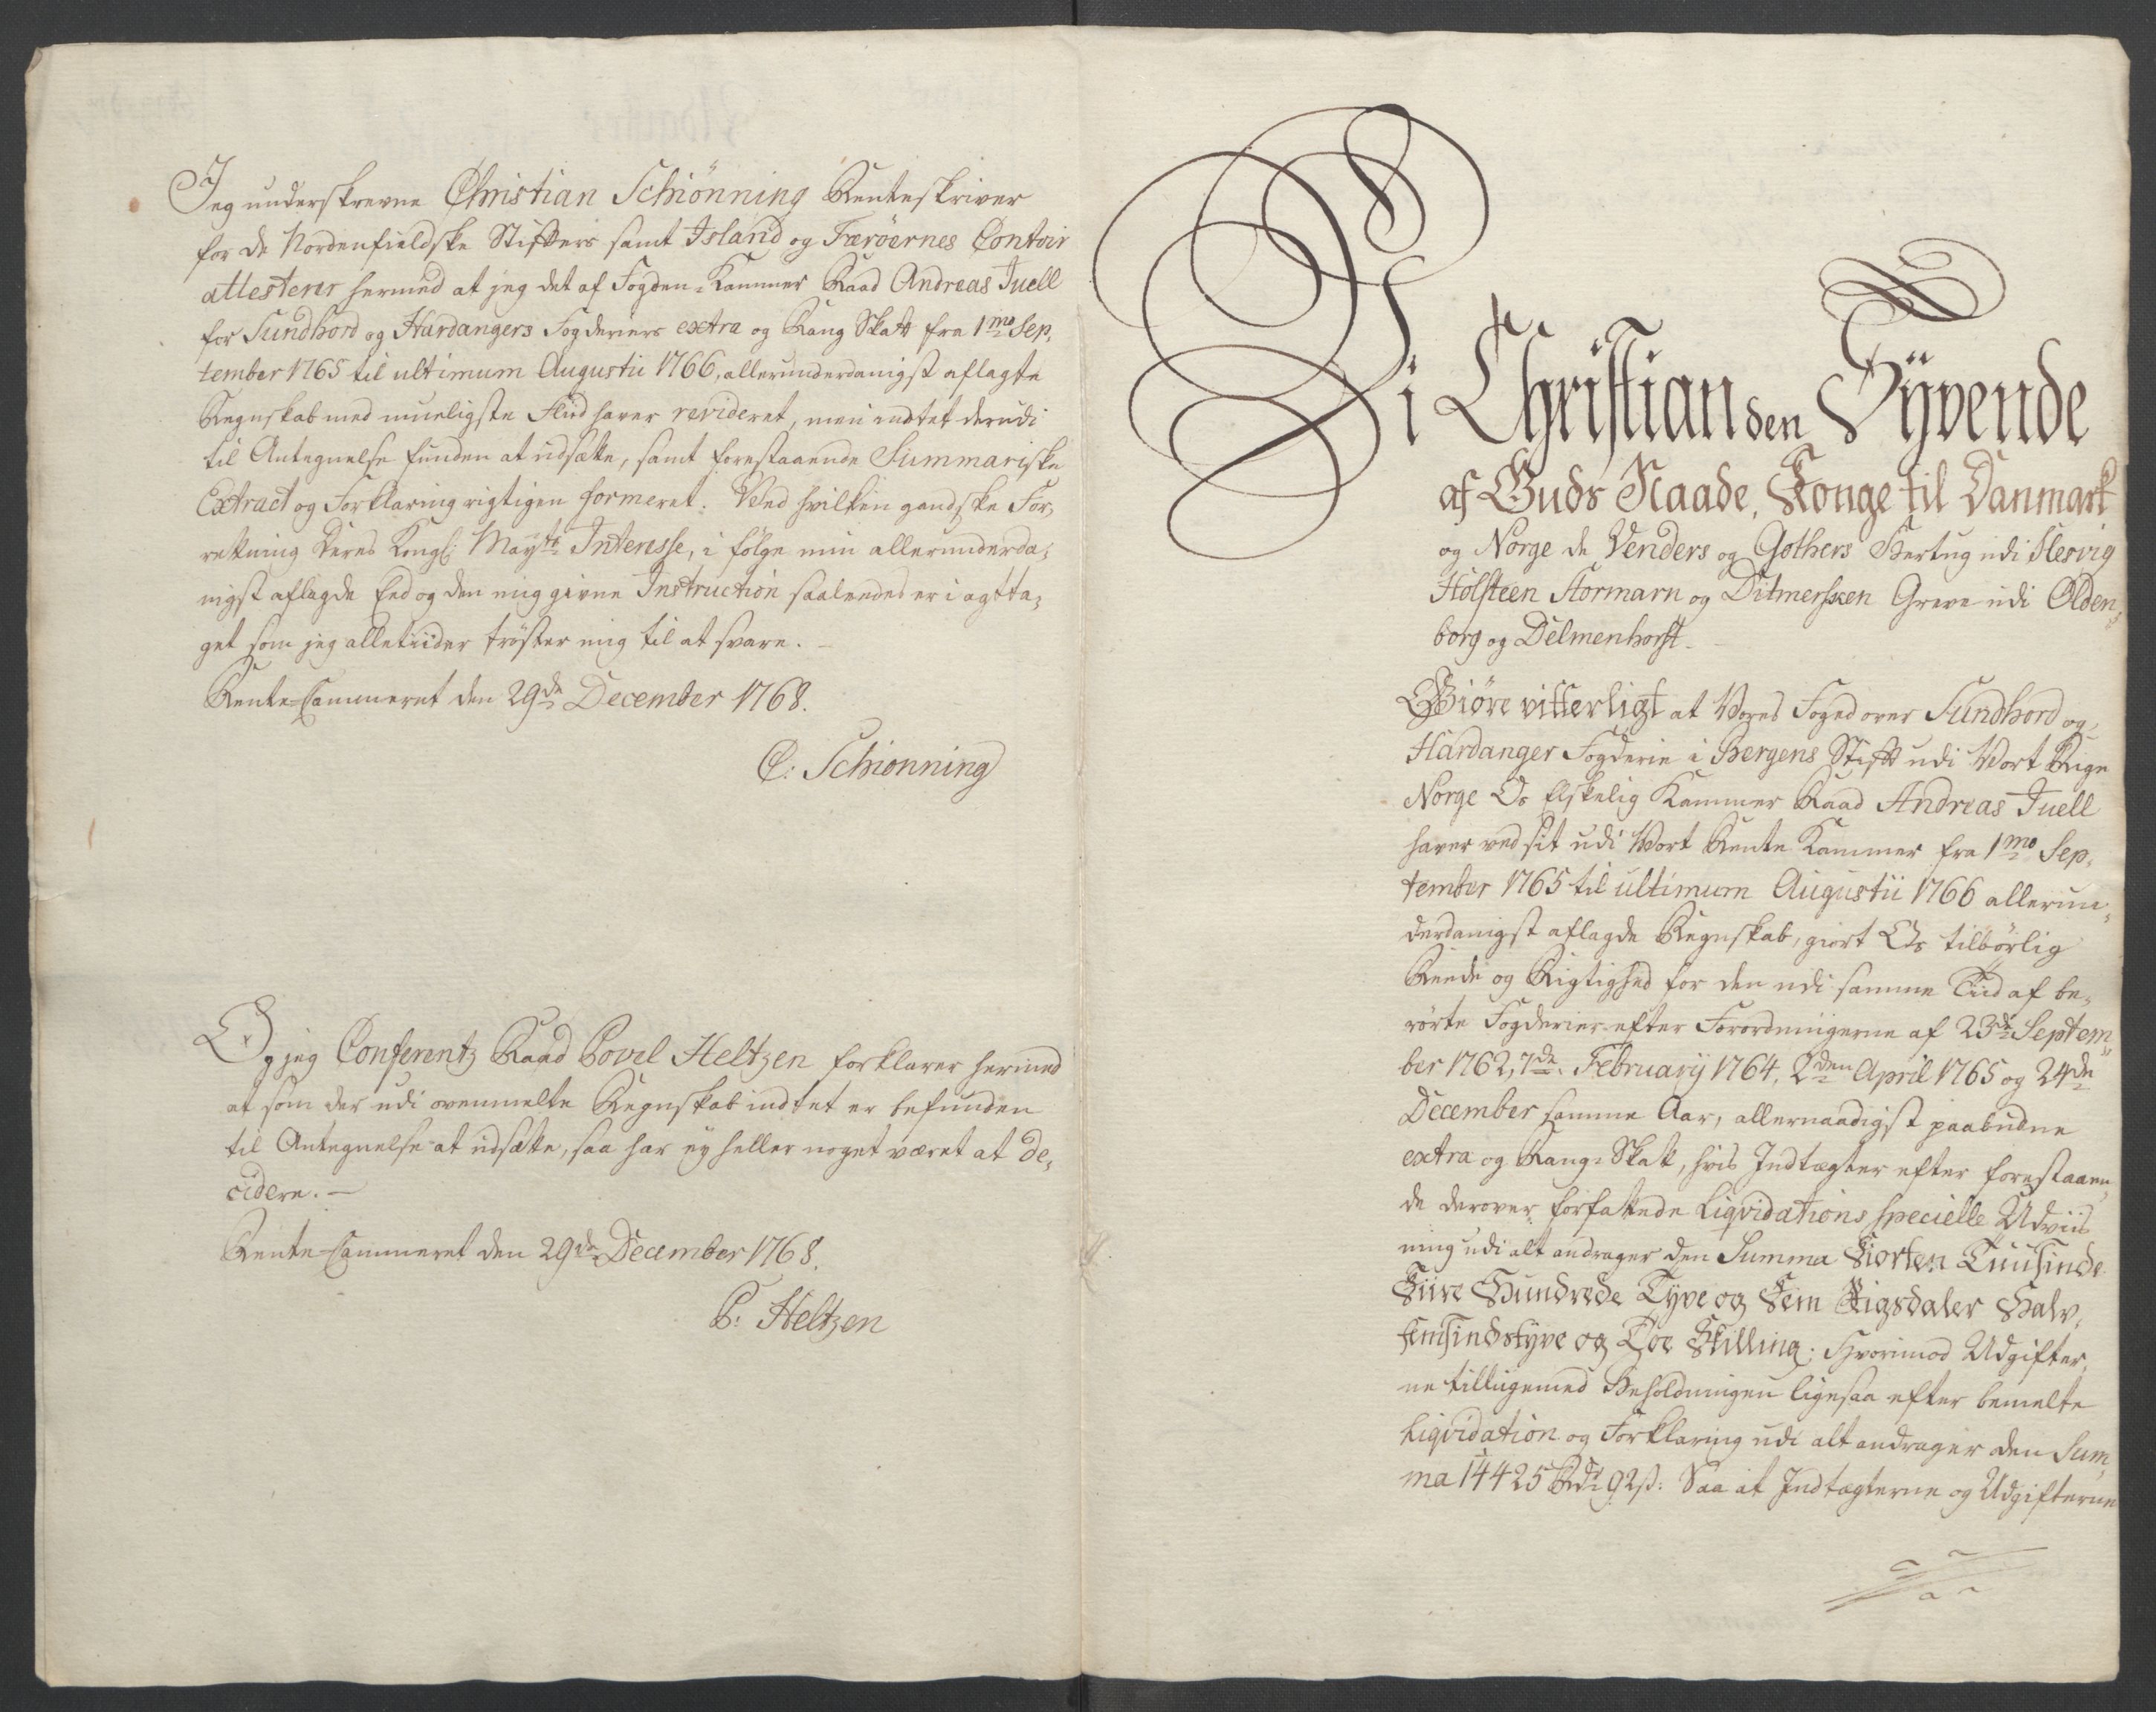 Jeg underskrevne Christian Schiönning Renteskriver
for de Nordenfieldske Stifters samt Island og Færöernes Contoir
attesterer hermed at jeg det af Fogden Kammer Raad Andreas Juell
for Sundhord og Hardangers Fogderiers extra og Rang Skatt fra 1mo Sep,
tember 1765 til ultimum Augustii 1766, allerunderdanigst aflagte
Regnskab med mueligste Fliid haver revideret, men indtet derudi
til Antegnelse funden at udsætte, samt forestaaende Summariske
Extract og Forklaring rigtigen formeret. Ved hvilken gandske For,
retning Deres Kongl: Mayts Interesse, i fölge min allerunderda,
nigst aflagde Eed og den mig givne Instruction saaledes er i agtta,
get som jeg alletiider tröster mig til at svare. –
Rente-Cammeret den 29de December 1768.
C: Schiønning
Og jeg Conferentz Raad Povel Heltzen forklarer hermed
at som der udi ovenmelte Regnskab indtet er befunden
til Antegnelse at udsætte, saa har ey heller noget været at de,
cidere. –
Rente-Cammeret den 29de December 1768.
P: Heltzen
Vi Christian den Syvende
af Guds Naade, Konge til Danmark
og Norge de Venders og Gothers Hertug udi Slesvig
Holsteen Stormarn og Ditmersken Greve udi Olden,
borg og Delmenhorst.
Giöre vitterligt at Vores Foged over Sundhord og
Hardanger Fogderie i Bergens Stift udi Vort Rige
Norge Os Elskelig Kammer Raad Andreas Juell
haver ved sit udi Vort Rente Kammer fra 1mo Sep,
tember 1765 til ultimum Augustii 1766 allerun,
derdanigst aflagde Regnskab, giort Os tilbörlig
Reede og Rigtighed for den udi samme Tiid af be,
rörte Fogderier efter Forordningerne af 23de Septem,
ber 1762, 7de February 1764, 2den April 1765 og 24de
December samme Aar, allernaadigst paabudne
extra og Rang-Skatt, hvis Indtægter efter forestaaen,
de derover forfattede Liqvidations specielle Udviis
ning udi alt andrager den Summa Fiorten Tuusinde
Fiire Hundrede Tyve og Fem Rigsdaler Halv,
femsindstyve og Toe Skilling; Hvorimod Udgifter,
ne tilligemed Beholdningen ligesaa efter bemelte
Liqvidation og Forklaring udi alt andrager den Sum,
ma 14425 Rdr 92ß: Saa at Indtægterne og Udgifterne